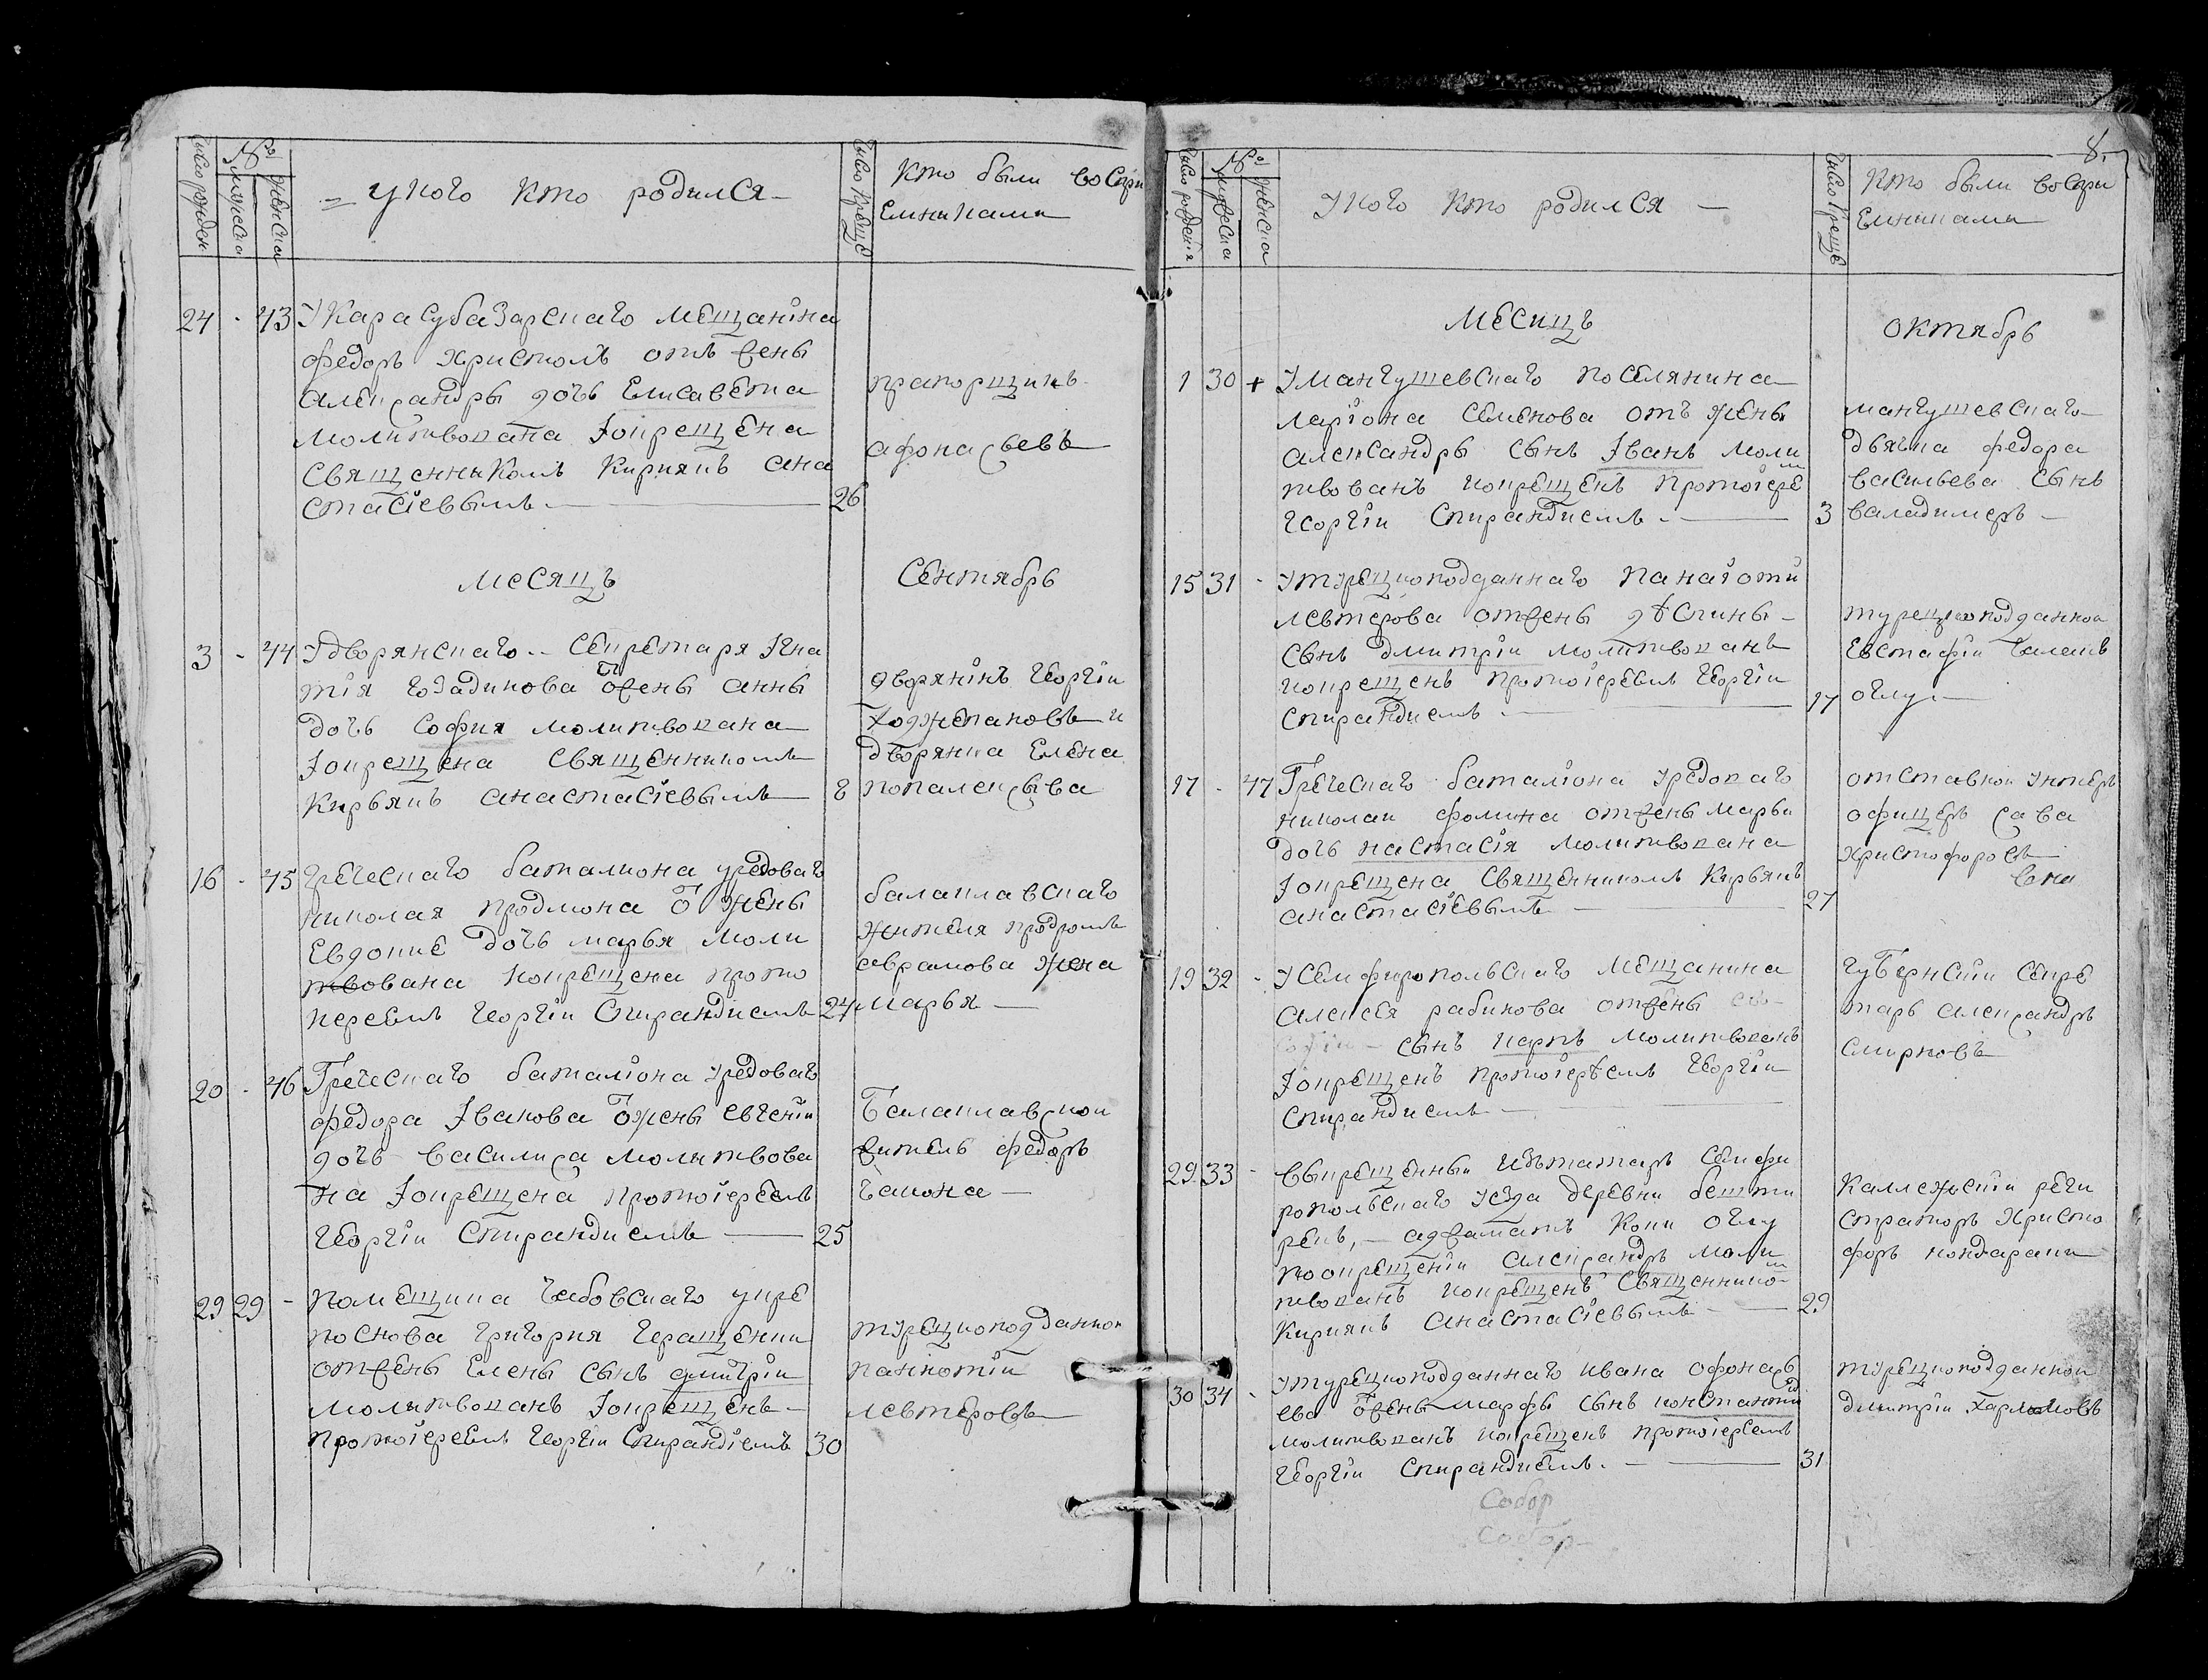 число рожден
№
мужеска
женска
= у кого кто родился -
число креще
кто были воспри
емниками
24 - 43 У Карасубазарскаго мещанина
федоръ христомъ отъ жены
александры дочь Елисавета
молитвована Iокрещена
священникомъ Кириякъ ана
стасiевымъ 26
прапорщикъ
афонасьевъ
месяцъ
Сентябрь
3 - 44 У дворянскаго секретаря Игна
тiя
ѿ жены анны
дочь София молитвована
Iокрещена священникомъ
Кирьякъ анастасiевымъ 8
дворянiнъ Георгiи
и
дворянка Елена
16 - 45 Греческаго баталиона уредоваго
николая продмона ѿ жены
Евдокие дочь марья моли
твована Iокрещена прото
иеревмъ Георгiи Спирандиемъ 24
балаклавскаго
жителя продромъ
аврамова жена
марья
20 - 46 Греческаго баталiона уредоваго
федора Iванова ѿ жены евгенiи
дочь василиса молитвова
на Iокрещена протоiереемъ
Георгiи Спирандиемъ 25
Балаклавскои
житель федоръ
29 29 - помещика
григория Геращенки
от жены Елены сынъ дмитрiи
молитвованъ Iокрещенъ
протоiеревмъ Георгiи Спирандiемъ 30
турецкоподданнои
панiотiи
левтеровъ
8.
число рожденiя
№
мужеска
женска
У кого кто родился
число креще
кто были воспри
емниками
Месицъ
октябрь
1 30 + У мангушевскаго поселянина
ларiона семенова отъ жены
александры сынъ Iванъ моли
твованъ Iокрещенъ протоiере
Георгiи Спирандиемъ 3
мангушевскаго
дьячка федора
васильева сынъ
валадимеръ
15 31 - У турецкоподданнаго панаiоти
левтерова от жены деспины
сынъ дмитрiи молитвованъ
Iокрещенъ протоiеревмъ Георгiи
Спирандиемъ 17
турецкоподданнои
Евстафiи
оглу
17 - 47 Греческаго баталiона уредоваго
николаи фомина от жены марьи
дочь настасiя молитвована
Iокрещена священникомъ Кирьякъ
анастасiевымъ 27
отставнои унтеръ
офицеръ сава
христофоровъ
19 32 - У семфиропольскаго мещанина
алексея рабинова от жены
сынъ карпъ молитвованъ
Iокрещенъ протоiереемъ Георгiи
Спирандиемъ
Губернскiи секре
тарь александръ
смирновъ
29 33 - выкрещенныи изъ татаръ семфи
ропольскаго уезда деревни
оглу
по окрещенiи александръ моли
твованъ Iокрещенъ священнико
Кириякъ анастасiевымъ 29
Каллежскiи реги
страторъ Христо
форъ кондараки
30 34 - У турецкоподданнаго ивана офонась
ева ѿ жены марфы сынъ константи
молитвованъ Iокрещенъ протоiереемъ
Георгiи Спирандиемъ. 31
турецкоподданнои
дмитрiи
Собор
Собор